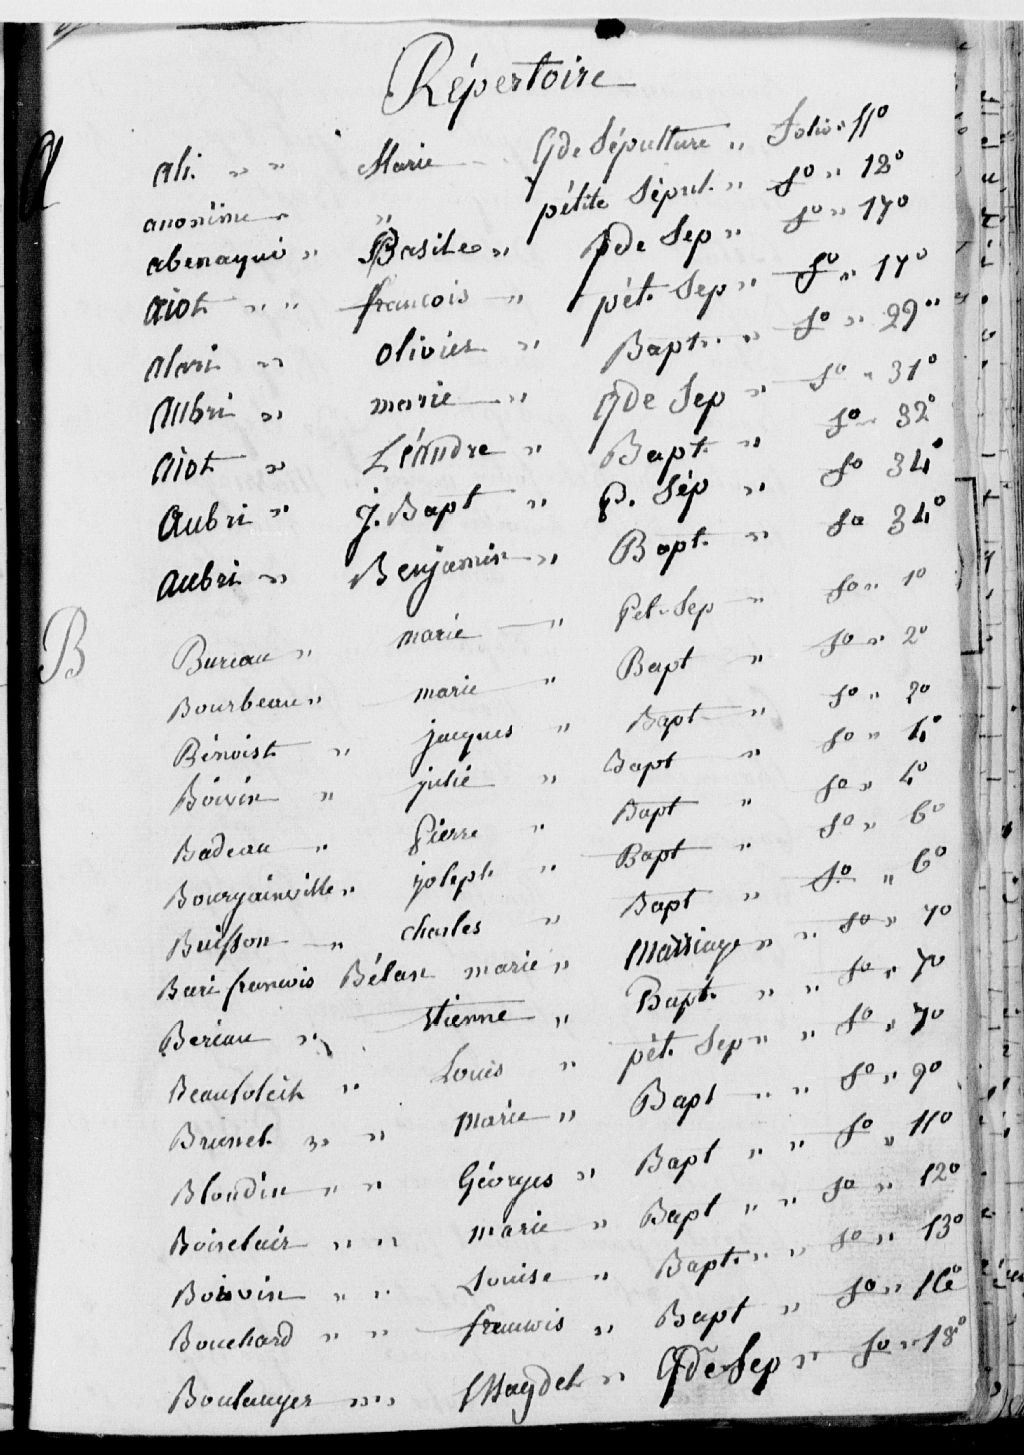 Répertoire
A
Ali. " " Marie " Gde Sépulture " Folio " 11°
anonime " " pétite Sépul. " fo " 12°
abenaqui " Basile " Gde Sep " fo " 17°
Aiot " " francois " pét. Sep " fo " 17°
Alari " Olivier " Bapt. " fo " 29"
Aubri " marie " Gde Sep " fo " 31°
Aiot " Léandre " Bapt. " fo 32°
Aubri " J. Bapt " P. Sép " fo 34°
Aubri " Benjamin " Bapt. " fo 34°
B
Bureau " marie " Pet. Sep " fo " 1°
Bourbeau " marie " Bapt " fo " 2°
Bénoist " jacques " Bapt " fo " 2°
Boivin " julie " Bapt " fo " 4°
Badeau " Pierre " Bapt " fo " 4°
Bourgainville " joseph " Bapt " fo " 6°
Buisson " charles " Bapt " fo " 6°
Bari francois Bélan marie " Marriage " " fo " 7°
Beriau " Etienne " Bapt. " " fo " 7°
Beausoleil " Louis " pét. Sep " " fo " 7°
Brunet " " Marie " Bapt " " fo " 9°
Blondin " " Géorges " Bapt " " fo " 11°
Boisclair " " marie " Bapt " " fo " 12°
Boisvin " " Louise " Bapt. " " fo " 13°
Bouchard " " francois " Bapt " fo " 16°
Boulanger " " Magdel " Gde Sep " fo " 18°